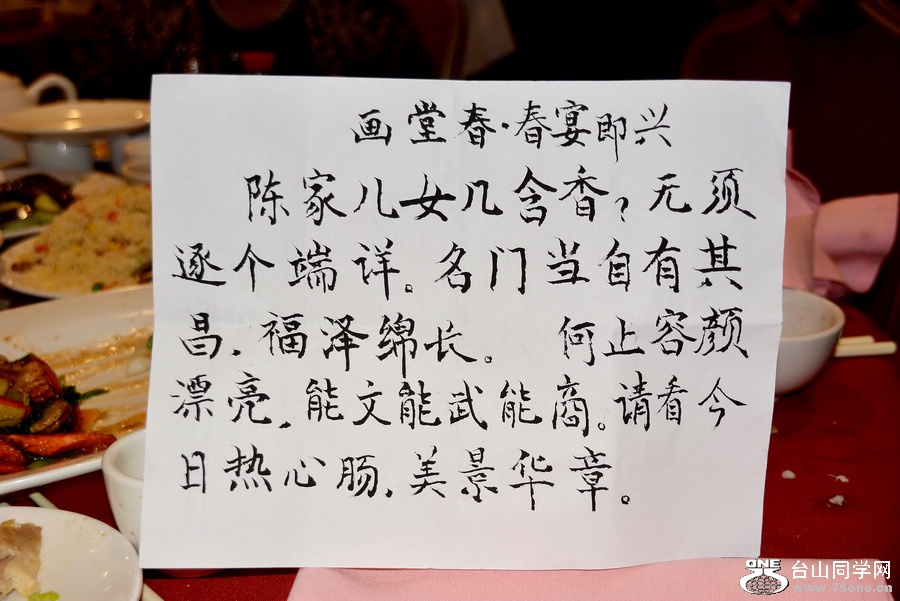 画堂春·春宴即兴
陈家儿女几含香?无须
逐个端详。名门当自有其
昌,福泽绵长。 何止容颜
漂亮,能文能武能商。请看今
日热心肠,美景华章。
ONE
台山同学网
www.75one.cn